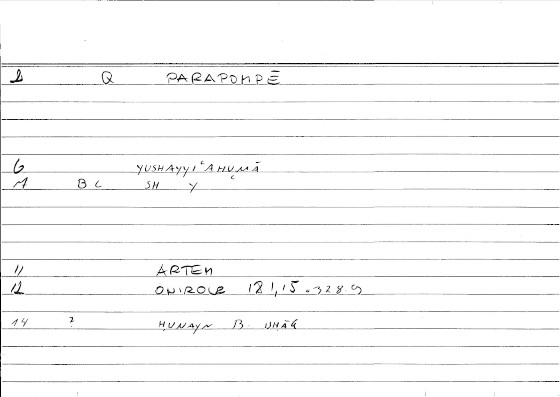 1 Q PARAPOMPĒ
6 YUSHAYYIʿAHUMĀ
M B C SH Y
11 ARTEM
12 ONIROCR 181,15 - 328.9
14 ? ḤUNAYN B.